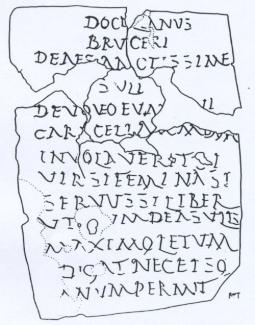 DOCILIANVS
BRVCERI
DEAE SANCTISSIME
SVLI
DEVOVEO EVM
CARACELLAM
INVOLAVERIT SI
VIR SI FEMINA SI
SERVVS SI LIBER
VT DEA SVLIS
MAXIMO LETVM
DIGAT NEC EI SO
NVM PERMIT